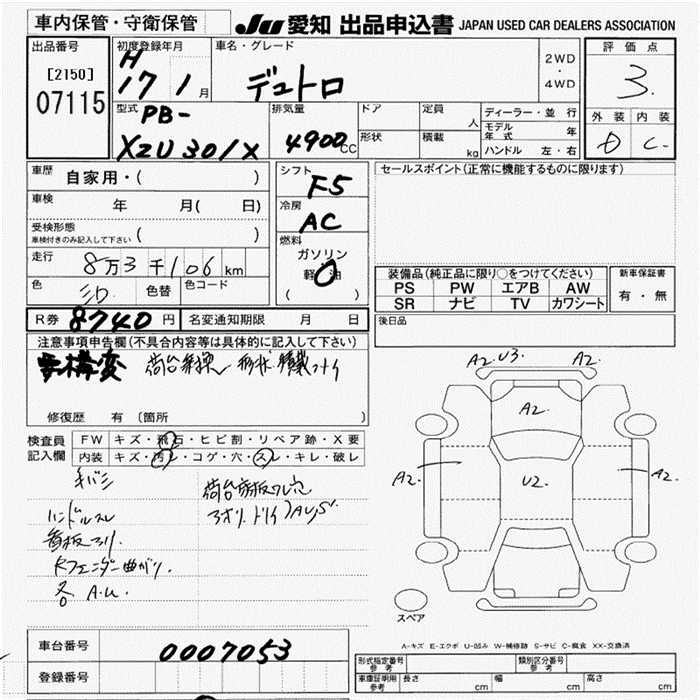 車内保管・守衛保管
JU 愛知 出品申込書 JAPAN USED CAR DEALERS ASSOCIATION
出品番号
[2150]
07115
初度登録年月
H
17 1月
車名・グレード
デュトロ
2WD
・
4WD
評価点
3.
外装 内装
D C
型式
PB-
XZU301X
排気量
4900CC
ドア
形状
定員 人
積載 kg
ディーラー・並行
モデル年式 年
ハンドル 左・右
車歴
自家用・( )
車検
年 月( 日)
受検形態
車検付きのみ記入して下さい ( )
走行
8万3千106km
色
色替
色コード
シフト
F5
冷房
AC
燃料
ガソリン
軽油
( )
セールスポイント(正常に機能するものに限ります)
装備品(純正品に限り○をつけてください)
PS PW エアB AW
SR ナビ TV カワシート
新車保証書
有・無
後日品
R券 8740円
名変通知期限 月 日
注意事項申告欄(不具合内容等は具体的に記入して下さい)
構変
修復歴 有 〔箇所 〕
検査員
記入欄
FW キズ・飛石・ヒビ割・リペア跡・X要
内装 キズ・汚レ・コゲ・穴・スレ・キレ・破レ
ハンドルスレ
A2. U3. A2.
A2.
A2. U2. A2.
スペア
A-キズ E-エクボ U-凹み W-補修跡 S-サビ C-腐食 XX-交換済
車台番号
0007053
登録番号
形式指定番号
参考
類別区分番号
参考
車庫証明用
参考
長さ cm 幅 cm 高さ cm